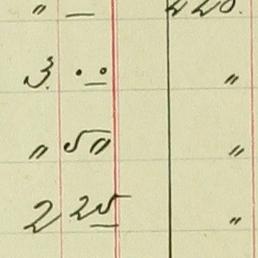 " — 220.
3. .. "
" 50 "
2 25 "